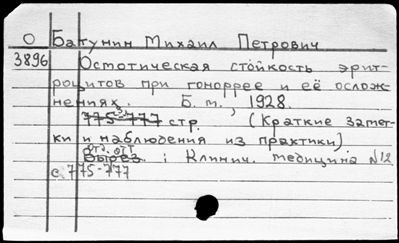 О Батунин Михаил Петрович
3896 Осмотическая стойкость эрит-
роцитов при гоноррее и её ослож-
нениях. Б. м., 1928.
775-777 3 стр. (Краткие замет-
ки и наблюдения из практики)
отд. отт.
Вырез. : Клинич. медицина №12
с 775-777